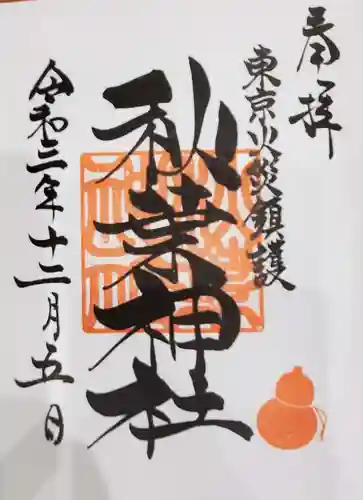 奉拝
東京火災鎮護
秋葉神社
令和三年十二月五日